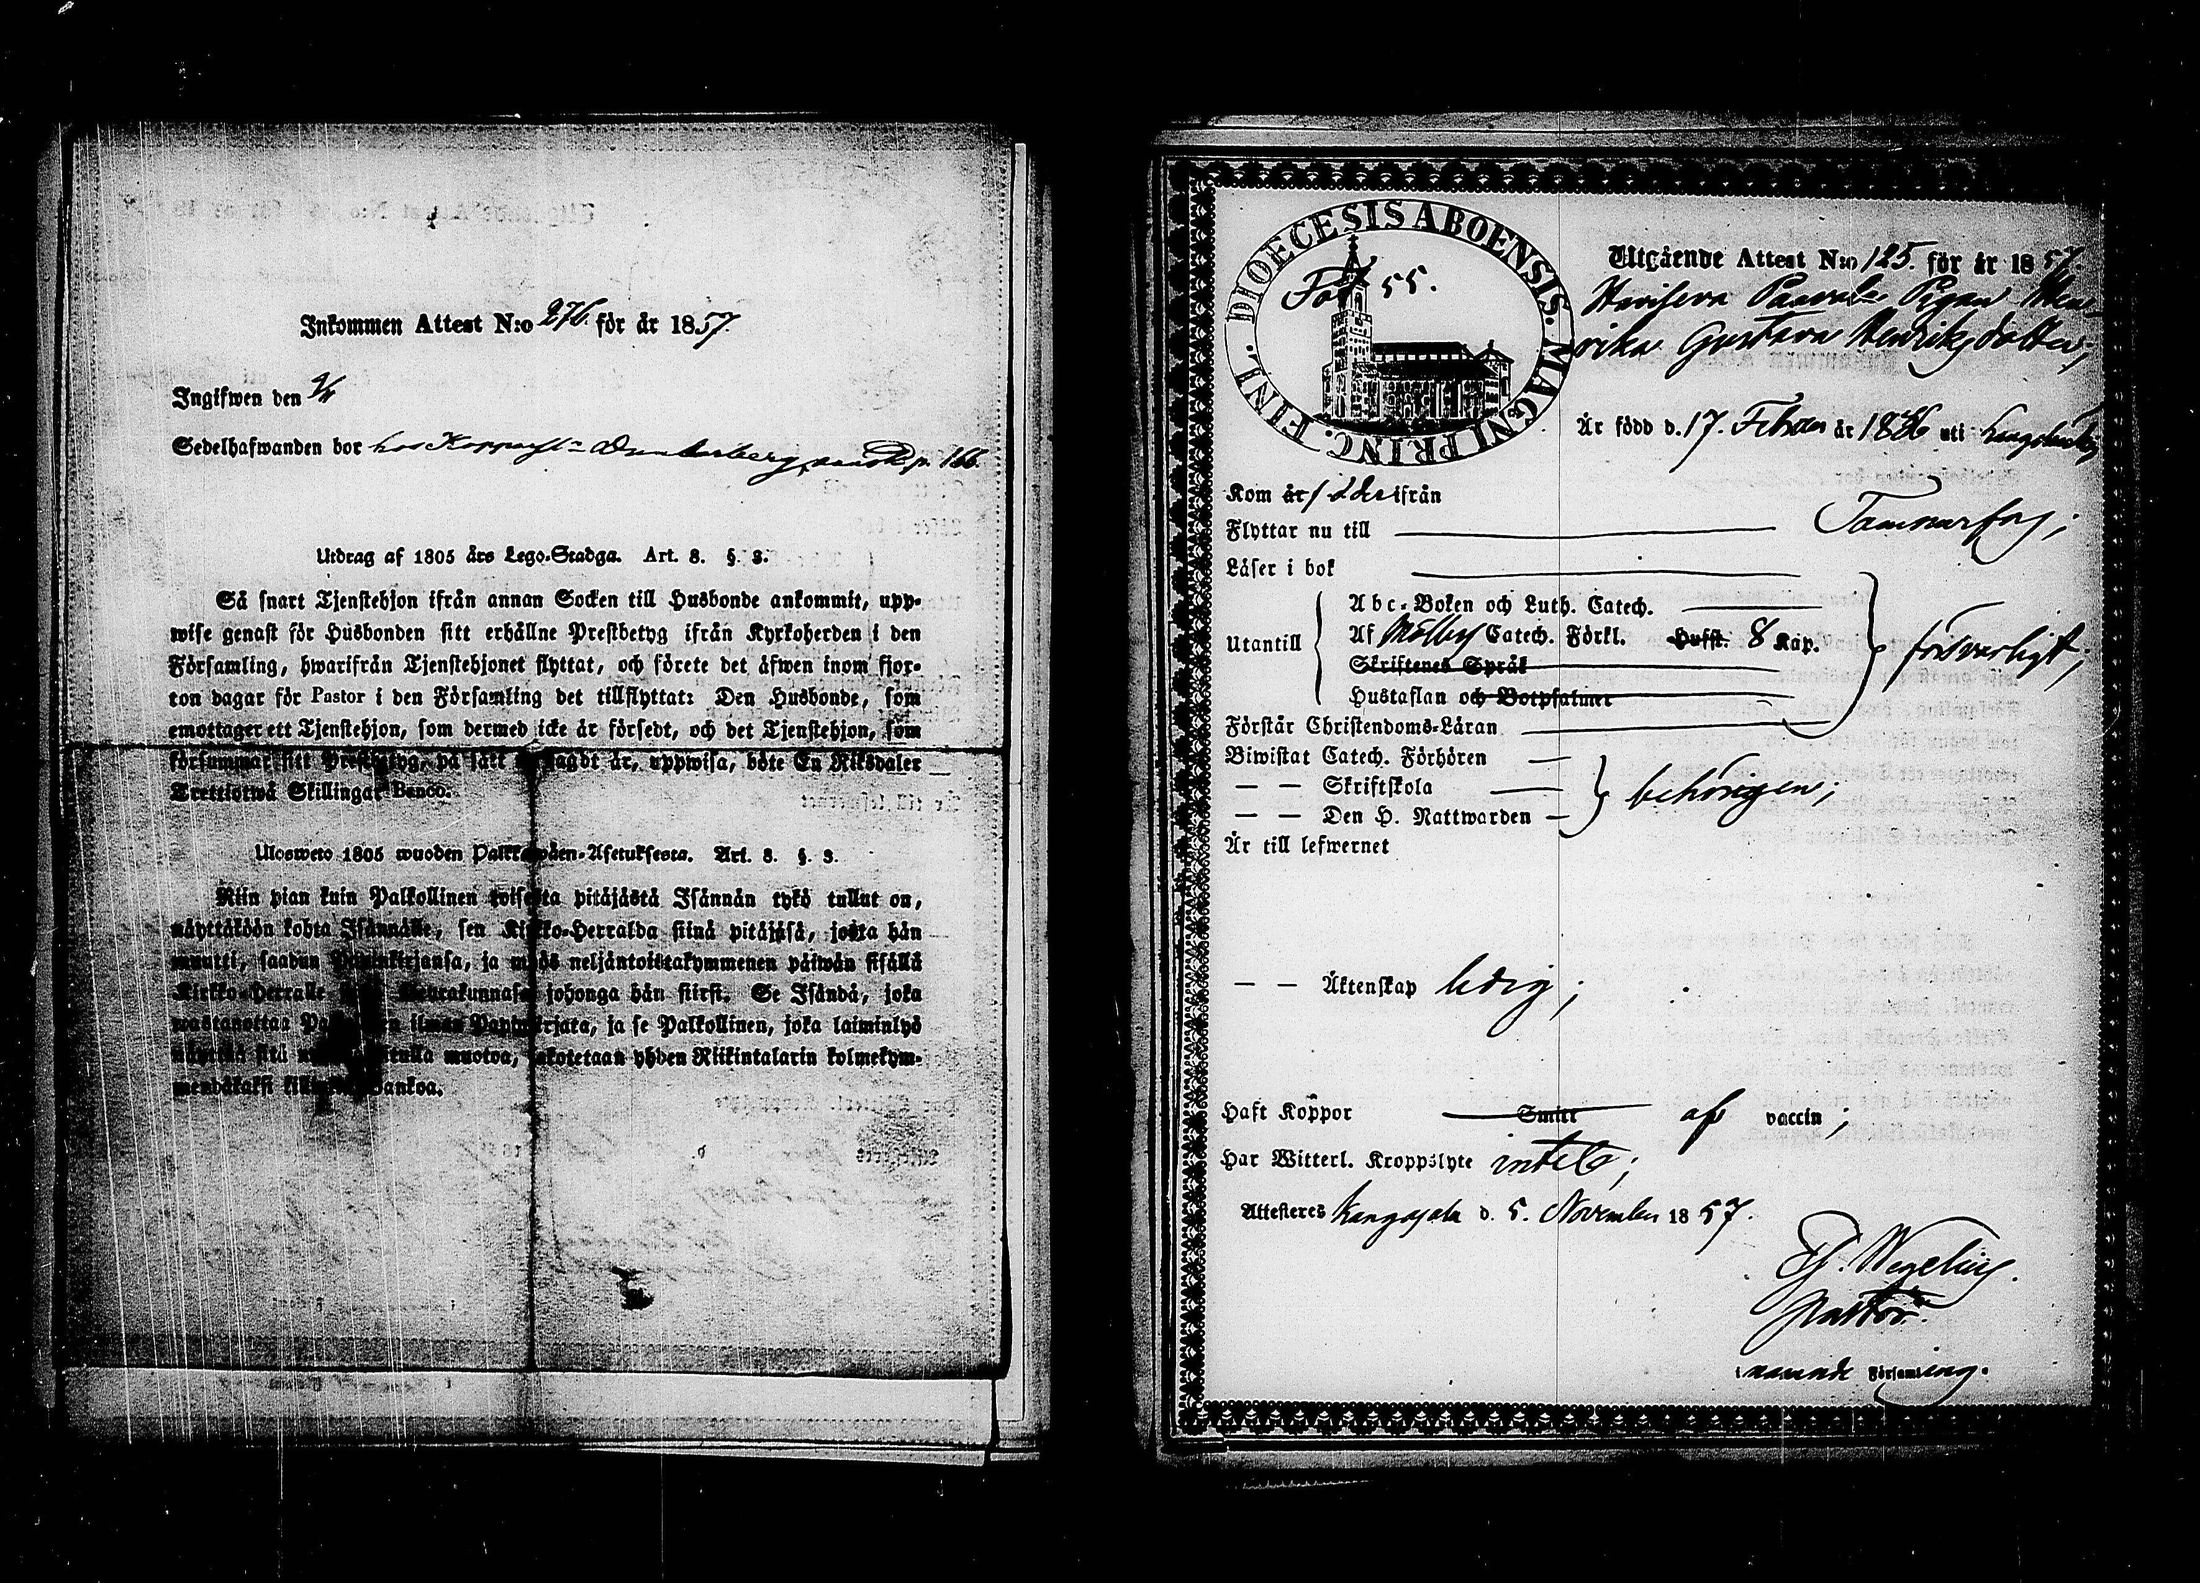 Inkommen Attest N:o 276. för år 1857.
Ingifwen den
Sedelhafwanden bor hos p. 166.
Utdrag af 1805 års Lego-Stadga. Art. 8. §. 3.
Så snart Tjenstehjon ifrån annan Socken till Husbonde ankommit, upp-
wise genast för Husbonden sitt erhållne Prestbetyg ifrån Kyrkoherden i den
Församling, hwarifrån Tjenstehjonet flyttat, och förete det äfwen inom fjor-
ton dagar för Pastor i den Församling det tillflyttat: Den Husbonde, som
emottager ett Tjenstehjon, som dermed icke är försedt, och det Tjenstehjon, som
försummar sitt Prestbetyg, på sätt sagdt är, uppwisa, böte En Riksdaler
Trettiotwå Skillingar Banco.
Ulosweto 1805 wuoden Palkkawäen-Asetuksesta. Art. 8. §. 3.
Niin pian kuin Palkollinen toisesta pitäjästä Isännän tykö tullut on,
näyttäköön kohta Isännälle, sen Kirkko-Herralda siinä pitäjäsä, josta hän
muutti, saadun Papinkirjansa, ja myös neljäntoistakymmenen päiwän sisällä
Kirkko-Herralle Seurakunnasa johonga hän siirsi. Se Isändä, joka
wastanottaa Palkollisen ilman Papinkirjata, ja se Palkollinen, joka laiminlyö
näyttää sitä muotoa, sakotetaan yhden Riikintalarin kolmekym-
mendäkaksi killingiä Bankoa.
DIOECESIS ABOENSIS. MAGNI PRINC. FINL.
Fol 55.
Utgående Attest N:o 125. för år 1857.
Pigan Hen-
rika Gustava Henriksdotter,
Är född d. 17. Febr. år 1836 uti
Kom år ifrån
Flyttar nu till Tammerfors;
Läser i bok
Utantill
Abc-Boken och Luth. Catech.
Af Möllers Catech. Förkl. Hufst. 8 Kap. försvarligt;
Skriftenes Språk
Hustaflan och Botpsalmer
Förstår Christendoms-Läran
Biwistat Catech. Förhören
— — Skriftskola behörigen;
— — Den H. Nattwarden
Är till lefwernet
— — Äktenskap ledig;
Haft Koppor Smitt af vaccin;
Har Witterl. Kroppslyte intet;
Attesteres Kangasala d. 5. November 1857.
Wegelius.
Pastor
i Församling.